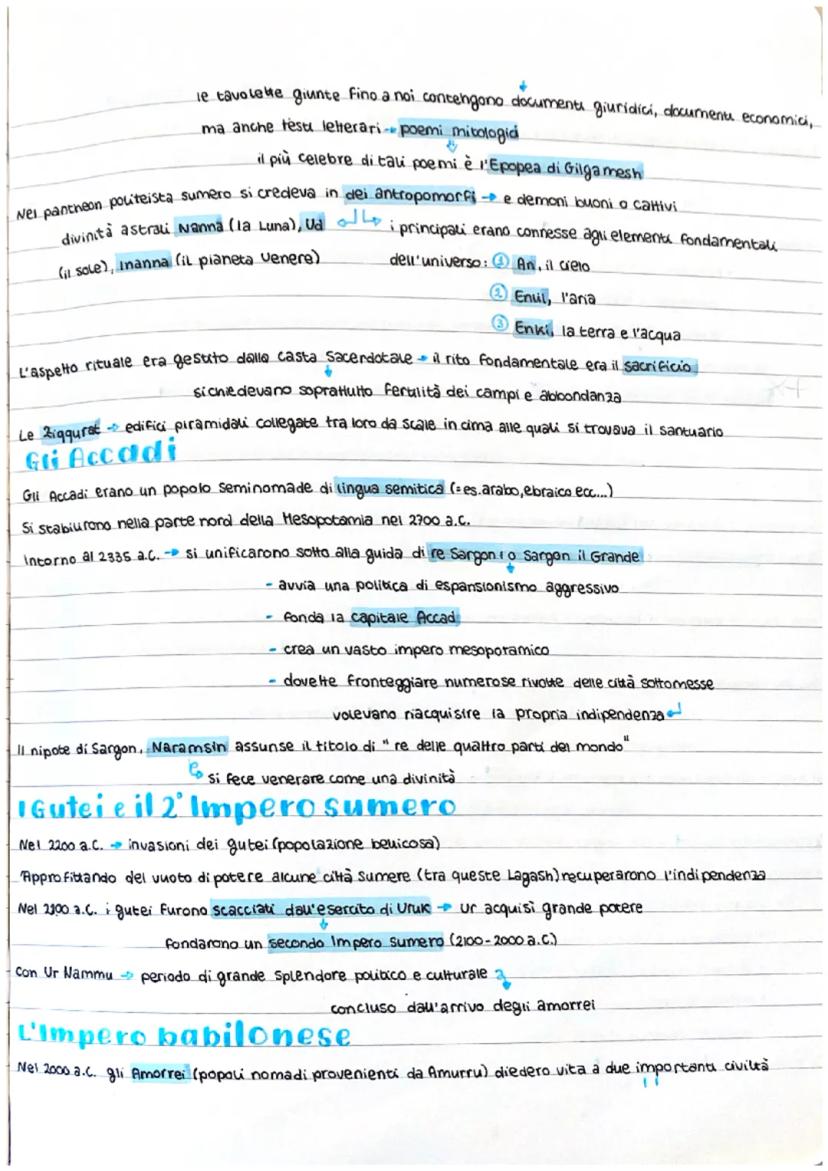 le tavolette giunte fino a noi contengono documenti giuridici, documenti economici,
ma anche testi letterari → poemi mitologici
il più celebre di tali poemi è l'Epopea di Gilgamesh
Nel pantheon politeista sumero si credeva in dei antropomorfi → e demoni buoni o cattivi
divinità astrali Nanna (la Luna), Ud
(il sole), Inanna (il pianeta Venere)
i principali erano connesse agli elementi fondamentali
dell'universo: ① An, il cielo
② Enlil, l'aria
③ Enki, la terra e l'acqua
L'aspetto rituale era gestito dalla casta Sacerdotale → il rito fondamentale era il sacrificio
si chiedevano soprattutto fertilità dei campi e abbondanza
Le Ziqqurat → edifici piramidali collegate tra loro da scale in cima alle quali si trovava il santuario
Gli Accadi
Gli Accadi erano un popolo seminomade di lingua semitica (=es.arabo, ebraico ecc...)
Si stabilirono nella parte nord della Mesopotamia nel 2700 a.C.
Intorno al 2335 a.C. → si unificarono sotto alla guida di re Sargon I o Sargon il Grande
- avvia una politica di espansionismo aggressivo
- fonda la capitale Accad
- crea un vasto impero mesopotamico
- dovette fronteggiare numerose rivolte delle città sottomesse
volevano riacquistre la propria indipendenza
Il nipote di Sargon, Naramsin assunse il titolo di "re delle quattro parti del mondo"
si fece venerare come una divinità
I Gutei e il 2° Impero sumero
Nel 2200 a.C. → invasioni dei gutei (popolazione bellicosa)
Approfittando del vuoto di potere alcune città sumere (tra queste Lagash) recuperarono l'indipendenza
Nel a.C. i gutei furono scacciati dall'esercito di Uruk → Ur acquisì grande potere
fondarono un secondo Impero Sumero (2100-2000 a.C.)
Con Ur Nammu → periodo di grande splendore politico e culturale
concluso dall'arrivo degli amorrei
L'Impero babilonese
Nel 2000 a.C. gli Amorrei (popoli nomadi provenienti da Amurru) diedero vita a due importanti civiltà